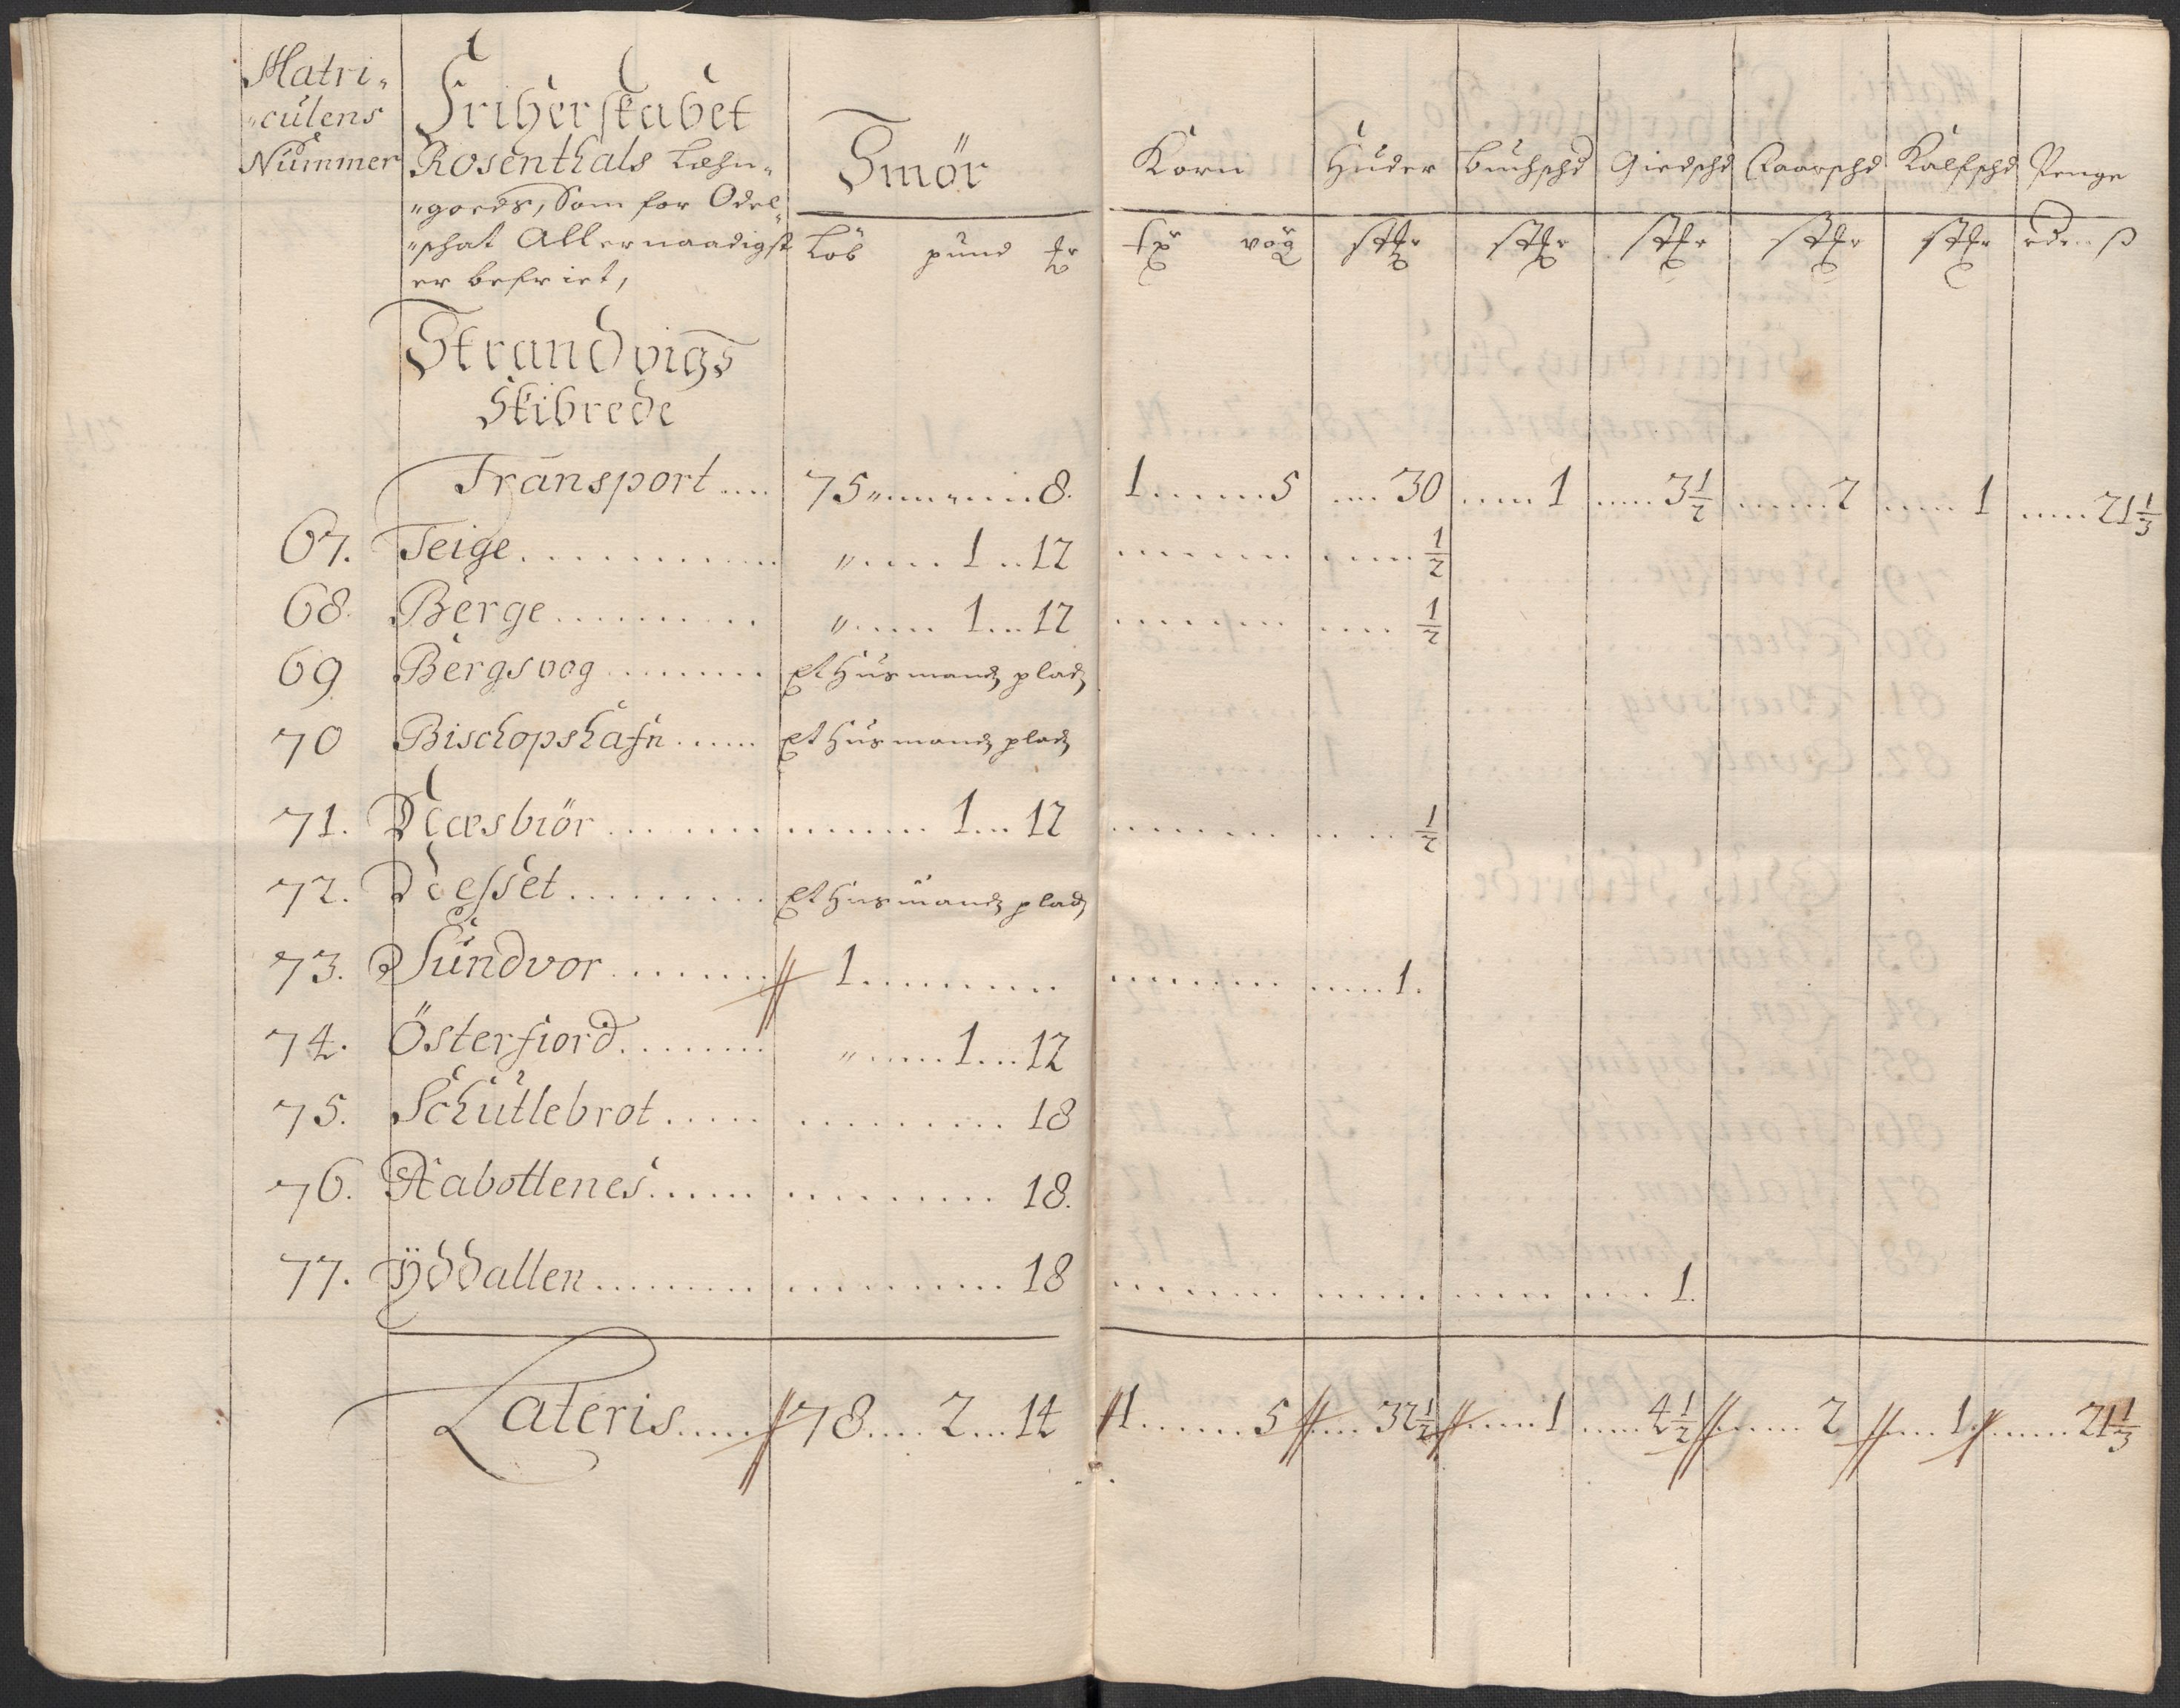 Matri-
culens
Nummer
Friherskabet
Rosenthals Læhn-
goeds, Som for Odel-
schat Allernaadigst
er befriet,
Smör
Korn Huder Buchschd Giedschd Faarschd Kalfschd Penge
Löb pund
vog
Strandvigs
Skibrede
Transport 75 " 8. 1 5 30 1 3 1/2 2 1 21 1/3
67. Teige " 1 12 1/2
68. Berge " 1 12 1/2
69 Bergsvog Et Husmands plads
70 Bischopshafn Et Husmands plads
71. Næsbiör 1 12 1/2
72. Nesset Et Husmands plads
73. Sundvor 1 1.
74. Österfiord " 1 12
75. Schutlebrot 18
76. Habottenes 18.
77. Ÿddallen 18 1.
Lateris 78 2 14 1 5 32 1/2 1 4 1/2 2 1 21 1/3